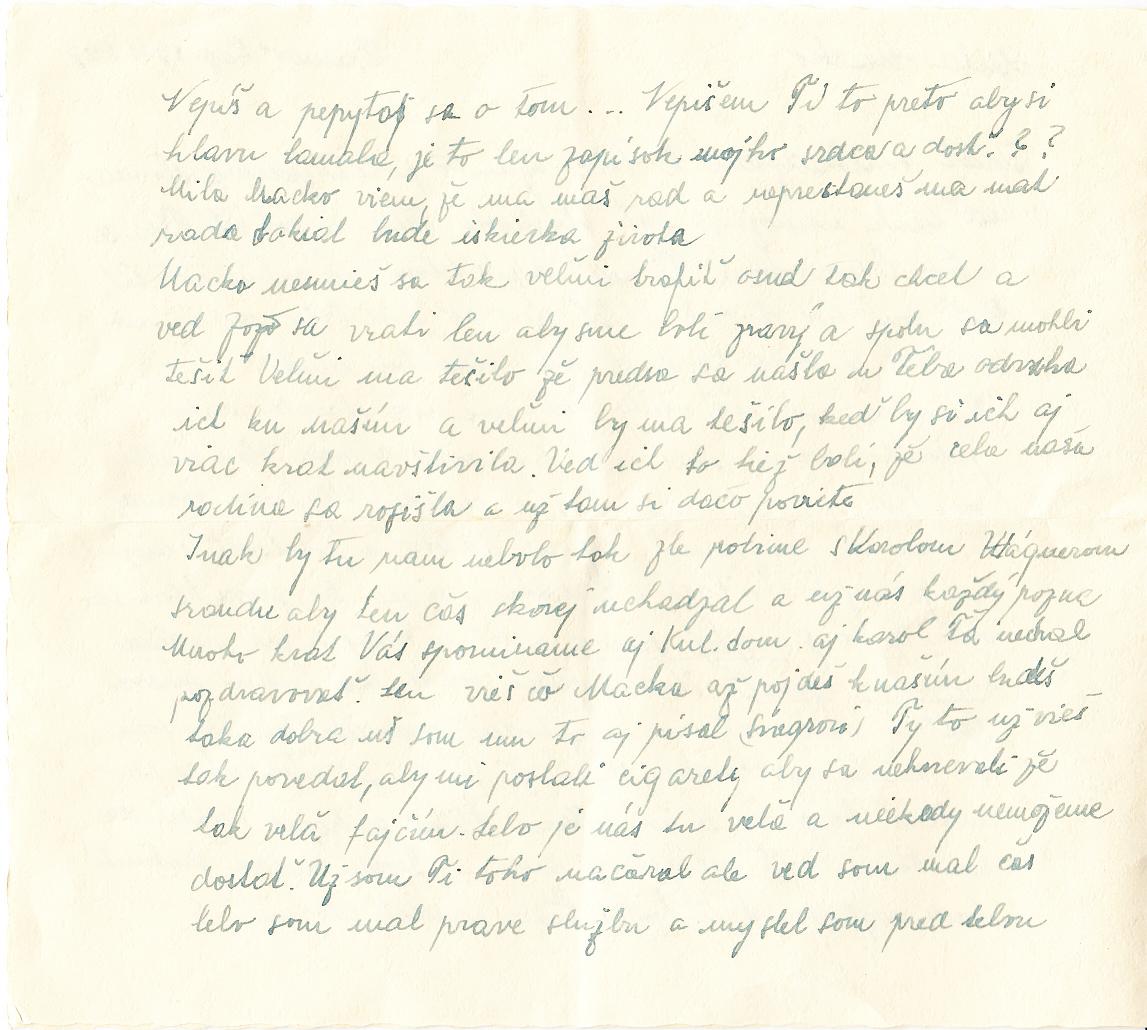 Nepíš a pepytaš sa o tom ... Nepišem Ti to preto aby si
hlavu lamala, je to len zapísok mojho srdca a dosť. ? ?
Mila Macko viem, že ma máš rad a neprestaneš ma mat
rada takial bude iskierka života
Macko nesmieš sa tak velmi trapiť osud tak chcel a
ved Jozo sa vrati len aby sme boli zravý a spolu sa mohli
tešiť Velmi ma tešilo že predsa sa našla u Teba odvaha
ist ku našim a velmi by ma tešilo, keď by si ich aj
viac krat navštivila. Ved ich to tiež bolí, že cela naša
rodina sa rozišla a už tam si dačo poviete
Inak by tu nam nebolo tak zle robime s Karolom Wágnerom
srandu aby ten čas skorej uchadzal a už nás každý pozna
Mnoho krat Vás spominame aj Kul. dom. aj karol Ťa nechal
pozdravovať. len vieš čo Macka až pojdeš k našim budeš
taka dobra uš som mu to aj písal (švagrovi) Ty to už vieš
tak povedat, aby mi poslali cigarety aby sa nehnevali že
tak velä fajčím. Lebo je nás tu velä a niekedy nemožeme
dostať. Už som Ti toho načaral ale ved som mal čas
lebo som mal prave službu a myslel som pred tebou